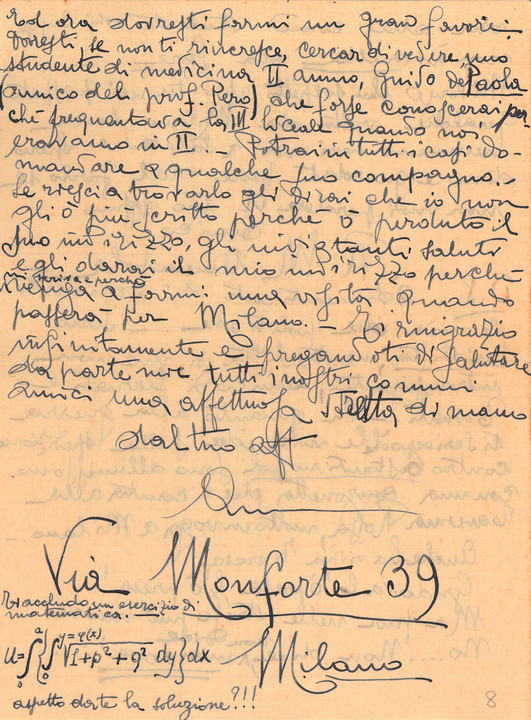 Ed ora dovresti farmi un gran favore:
Dovresti, se non ti rincresce, cercar di vedere, uno
studente di medicina II anno, Guido de Paola
(amico del prof. Pero) che forse conoscerai per
ché frequentava la III liceale quando noi
eravamo in II. - Potrai in tutti i casi do-
mandare a qualche suo compagno. -
Se riesci a trovarlo gli dirai che io non
gli ò più scritto perché ò perduto il
suo indirizzo, gli invii tanti saluti
e gli darai il mio indirizzo perché
mi scriva e perché
venga a farmi una visita quando
passerà per Milano. - Ti ringrazio
infinitamente e pregandoti di salutare
da parte mia tutti i nostri comuni
amici una affettuosa stretta di mano
dal tuo aff
Via Monforte 39
Milano
Ti accludo un esercizio di
matematica. -
u = ∫₀ᵃ{∫₀^{y=φ(x)} √1+p²+q² dy}dx
aspetto da te la soluzione?!!!
8